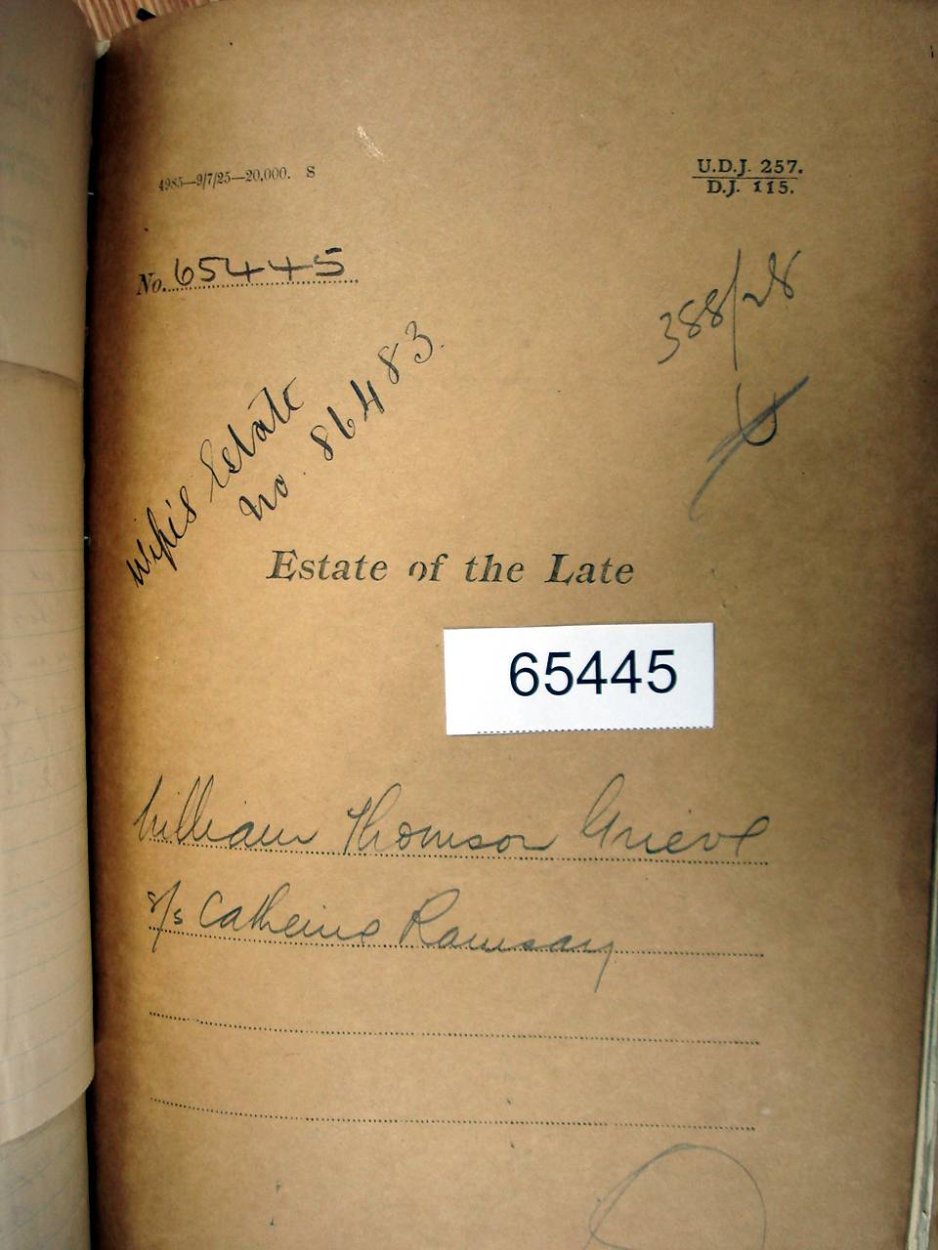 4985—9/7/25—20,000. S
U.D.J. 257.
D.J. 115.
No. 65445
388/28
Wife's Estate
No. 86483.
Estate of the Late
65445
William Thomson Grieve
s/s Catherine Ramsay